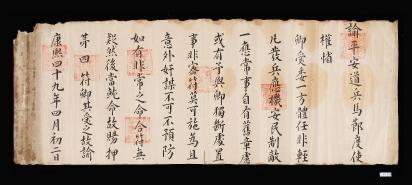 諭平安道兵馬節度使
權愭
卿受委一方體任非輕
凡發兵應機安民制敵
一應常事自有舊章慮
或有予與卿獨斷處置
事非密符莫可施爲且
意外奸謀不可不預防
如有非常之命合符無
疑然後當就命故賜押
第四符卿其受之故諭
康熙四十九年四月初二日